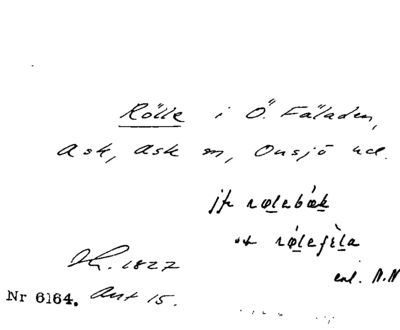 Rölle i Ö. Fäladen,
Ask, Ask sn, Onsjö hd.
jfr rølebák
o rø̀lefèla
enl. N.N
1827
Nr 6164. Ant 15.